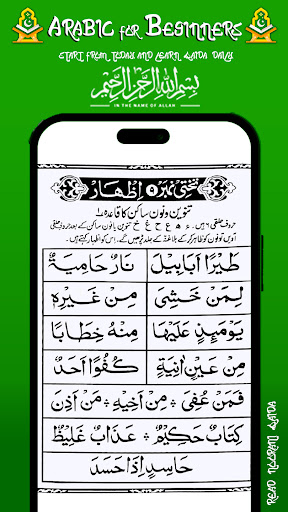 ARABIC for BEGINNERS
START FROM TODAY AND LEARN QAIDA DAILY
بِسْمِ اللَّهِ الرَّحْمَٰنِ الرَّحِيمِ
IN THE NAME OF ALLAH
تختی نمبر ۵ اظہار
تنوین و نون ساکن کا قاعدہ ۱
حروف حلقی ۶ ہیں۔ ء ہ ع ح غ خ تنوین یا نون ساکن کے بعد حروف حلقی
آویں تو نون کو ظاہر کر کے جلد پڑھیں گے۔ اس کو اظہار کہتے ہیں۔
طَيْرًا اَبَابِيْلَ نَارٌ حَامِيَةٌ
لِمَنْ خَشِيَ مِنْ غَيْرِهٖ
يَوْمَئِذٍ عَلَيْهَا مِنْهُ خِطَابًا
مِنْ عَيْنٍ اٰنِيَةٍ كُفُوًا اَحَدٌ
فَمَنْ عُفِيَ ۞ مِنْ اَخِيْهِ ۞ مَنْ اَذِنَ
كِتَابٌ حَكِيْمٌ ۞ عَذَابٌ غَلِيْظٌ
حَاسِدٍ اِذَا حَسَدَ
READ NOORANI QAIDA